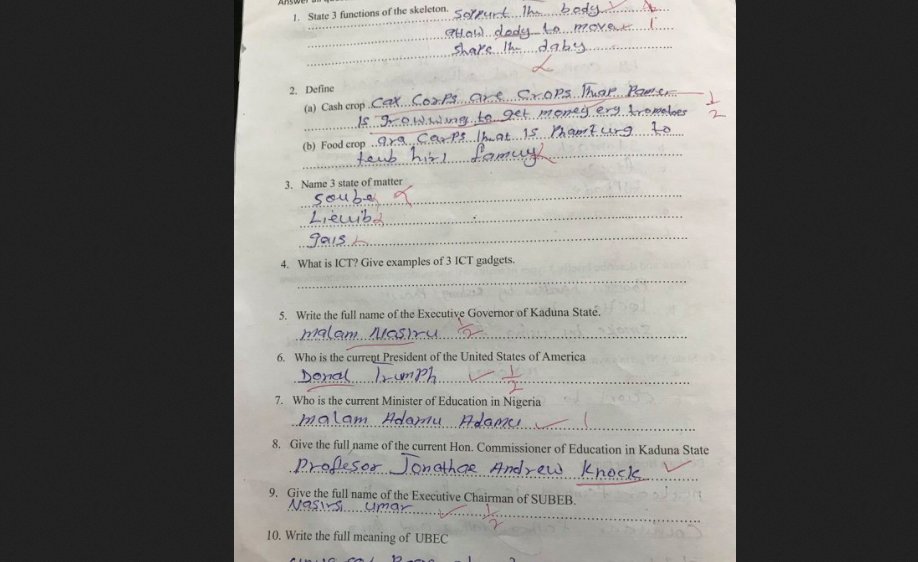 1. State 3 functions of the skeleton. Sorrurt The body
allow dody to move 1
Share The daby
2. Define
(a) Cash crop Cax Corps are Crops That Pamer 1/2
Is growwing to get money erg
(b) Food crop ara Carps that is Phamturg to
teub hirl famuy
3. Name 3 state of matter
soube
Lieuib
gais
4. What is ICT? Give examples of 3 ICT gadgets.
5. Write the full name of the Executive Governor of Kaduna State.
malam Nasiru 1/2
6. Who is the current President of the United States of America
Donal Trumph 1/2
7. Who is the current Minister of Education in Nigeria
malam Adamu Adamu 1
8. Give the full name of the current Hon. Commissioner of Education in Kaduna State
Profesor Jonathae Andrew Knock
9. Give the full name of the Executive Chairman of SUBEB.
Nasirs umar 1/2
10. Write the full meaning of UBEC